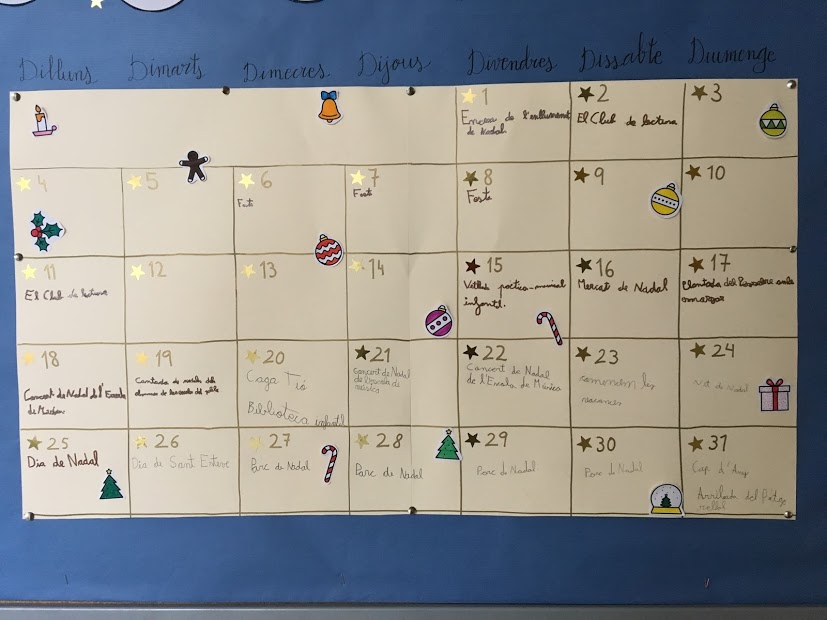 Dilluns Dimarts Dimecres Dijous Divendres Dissabte Diumenge
1
Encesa de l'enllumenat
de Nadal
2
El Club de lectura
3
4
5
6
7
Festa
8
Festa
9
10
11
El Club de lectura
12
13
14
15
Vetllada poètica-musical
infantil.
16
Mercat de Nadal
17
Plantada del Pessebre amb
18
Concert de Nadal de l'Escola
de Música
19
Cantada de nadales dels
alumnes de les escoles del poble
20
Caga Tió
Biblioteca infantil
21
Concert de Nadal
de l'Escola de
música
22
Concert de Nadal
de l'Escola de Música
23
comencem les
vacances
24
Nit de Nadal
25
Dia de Nadal
26
Dia de Sant Esteve
27
Parc de Nadal
28
Parc de Nadal
29
Parc de Nadal
30
Parc de Nadal
31
Cap d'Any
Arribada del